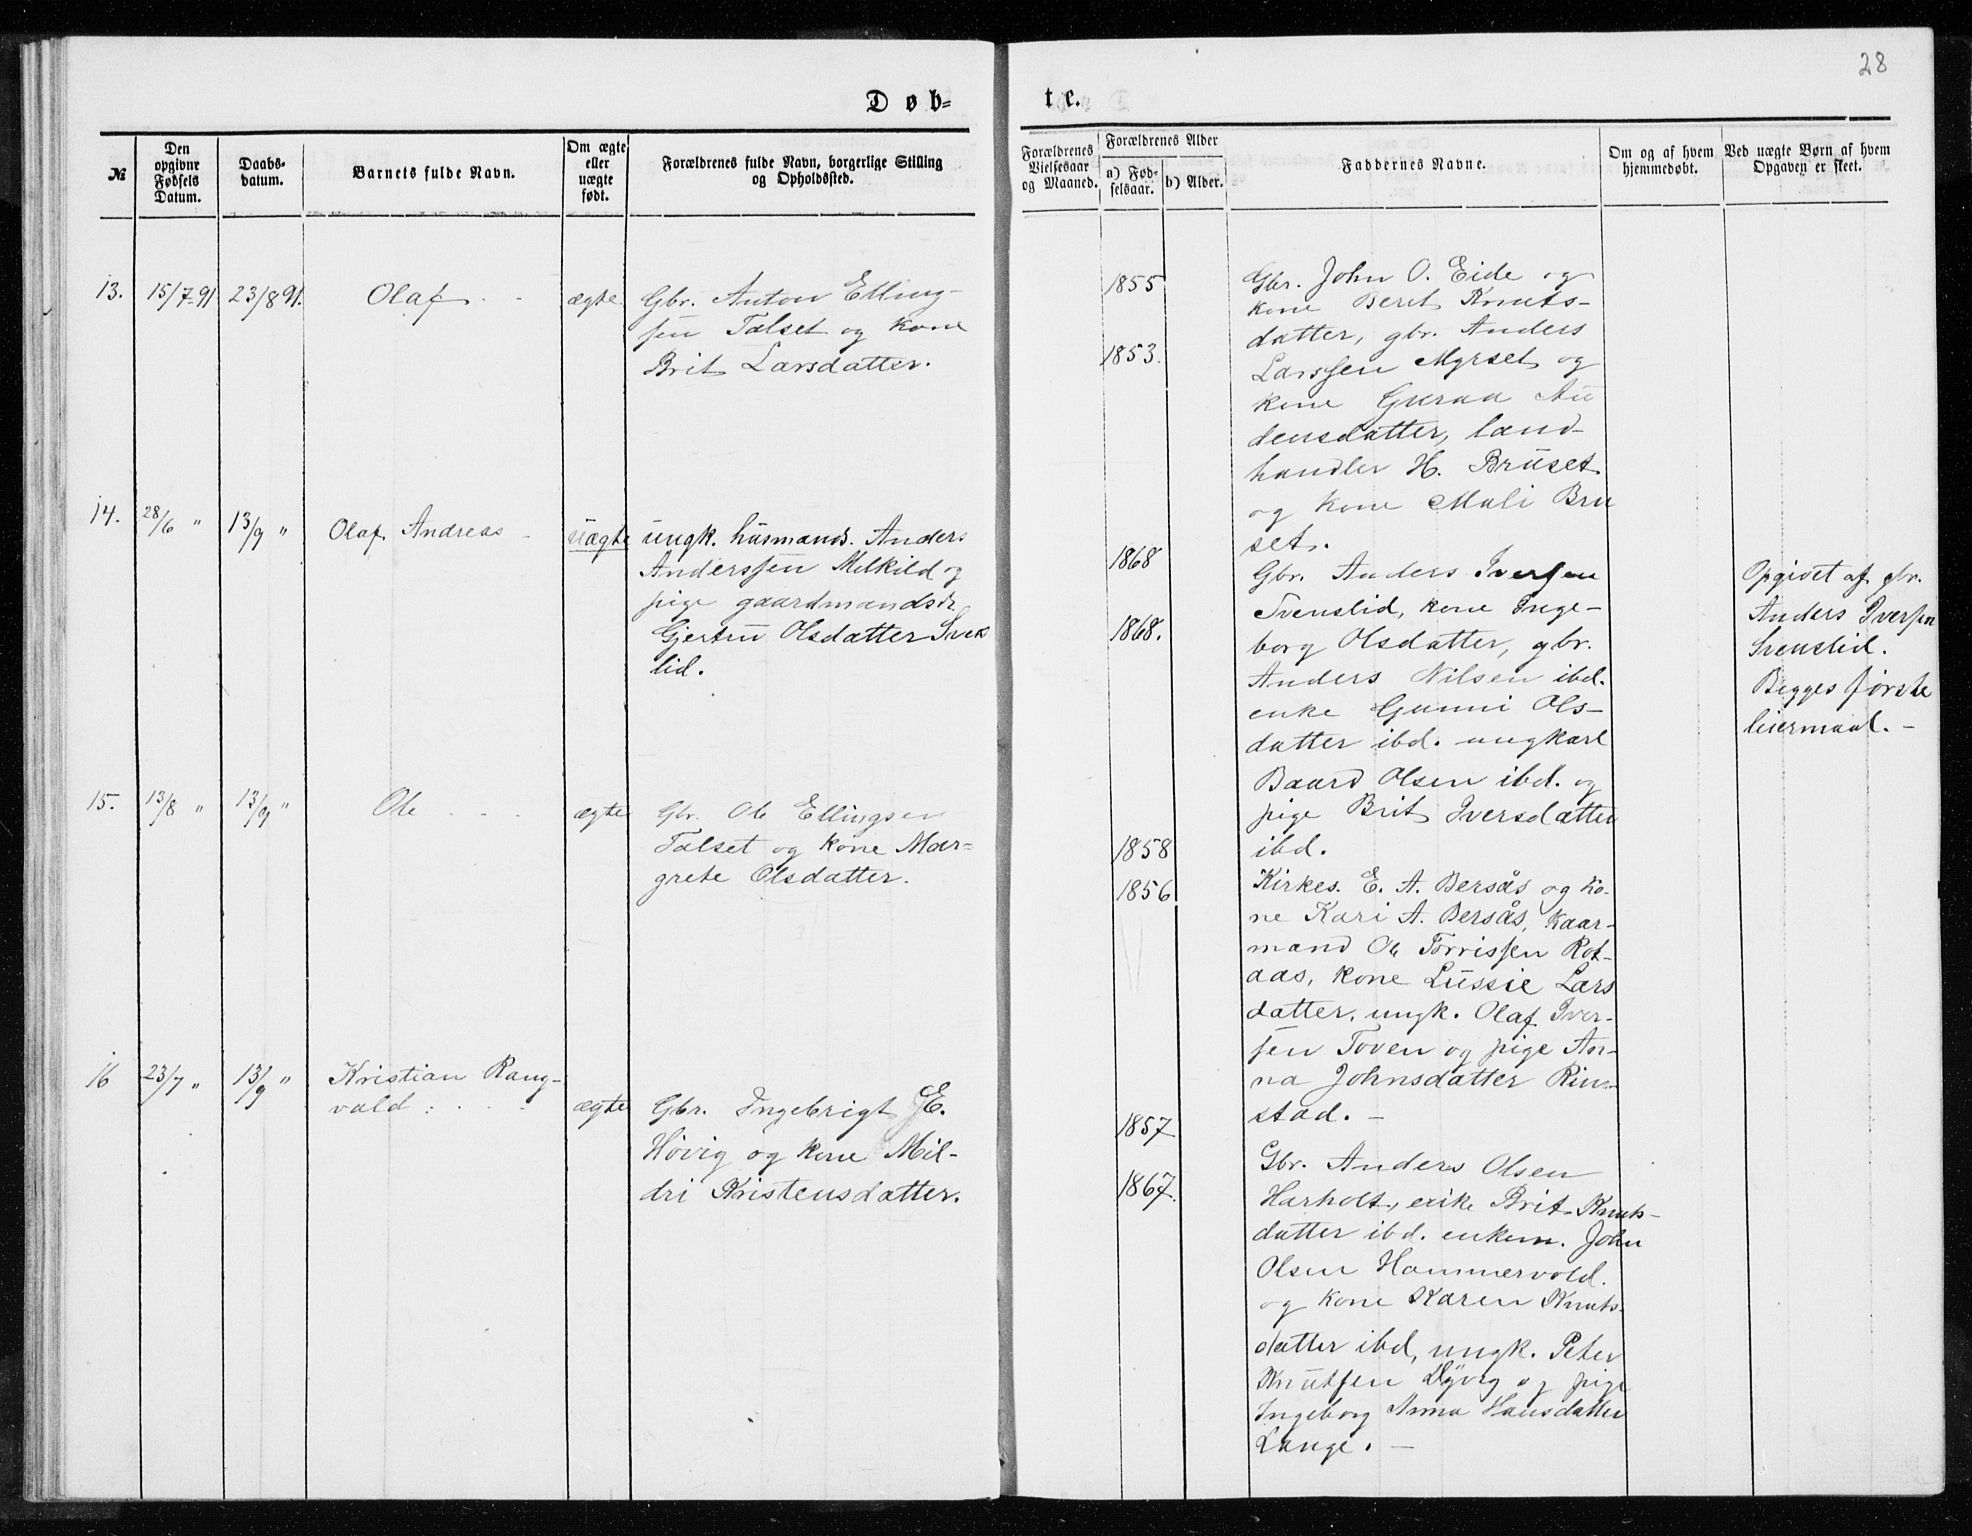 28
Døb=
te.
№
Den opgivne Fødsels Datum.
Daabs-datum.
Barnets fulde Navn.
Om ægte eller uægte født.
Forældrenes fulde Navn, borgerlige Stilling og Opholdssted.
Forældrenes Vielsesaar og Maaned.
Forældrenes Alder
a) Fød-selsaar.
b) Alder.
Faddernes Navne.
Om og af hvem hjemmedøbt.
Ved uægte Børn af hvem Opgaven er skeet.
13. 15/7-91 23/8 91. Olaf ægte
Gbr. Anton Elling-
sen Talset og kone
Brit Larsdatter.
1855
1853.
Gbr. John O. Eide og
kone Beret Knuts-
datter, gbr. Anders
Larssen Myrset og
kone Guraa Au
densdatter, land-
handler H. Bruset
og kone Mali Bru
set.
14. 28/6 " 13/9 " Olaf Andreas uægte
ungk. husmands. Anders
Anderssen Melkild og
pige gaardmandsd.
Gjertru Olsdatter Svens
lid.
1868
1868.
Gbr. Anders Iversen
Svenslid, kone Inge-
borg Olsdatter, gbr.
Anders Nilsen ibd.
enke Gunni Ols-
datter ibd. ungkarl
Baard Olsen ibd. og
pige Brit Iversdatter
ibd.
Opgivet af gbr.
Anders Iversen
Svenslid.
Begges første
leiermaal. -
15. 13/8 " 13/9 " Ole ægte
Gbr. Ole Ellingsen
Talset og kone Mar=
grete Olsdatter.
1858
1856
Kirkes. E. A. Bersås og ko-
ne Kari A. Bersås, kaar-
mand Ole Torrissen Rot-
aas, kone Lussie Lars
datter, ungk. Olaf Iver-
sen Toven og pige An-
na Johnsdatter Rin-
stad. -
16 23/7 " 13/9 " Kristian Rang-
vald ægte
Gbr. Ingebrigt E.
Høvig og kone Mil-
dri Kristensdatter.
1857
1867.
Gbr. Anders Olsen
Harholt, enke Brit Knuts-
datter ibd. enkem. John
Olsen Hammervold.
og kone Karen Knuts-
datter ibd, ungk. Peter
Knutsen Dyvig og pige
Ingeborg Anna Hansdatter
Lange. -